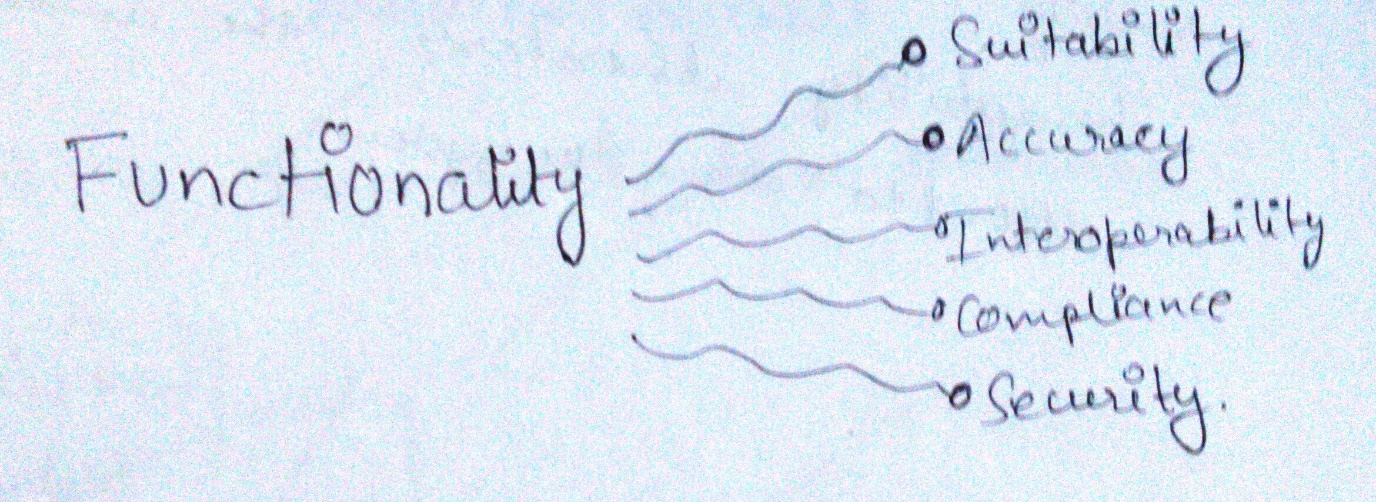 Functionality
Suitability
Accuracy
Interoperability
Compliance
Security.